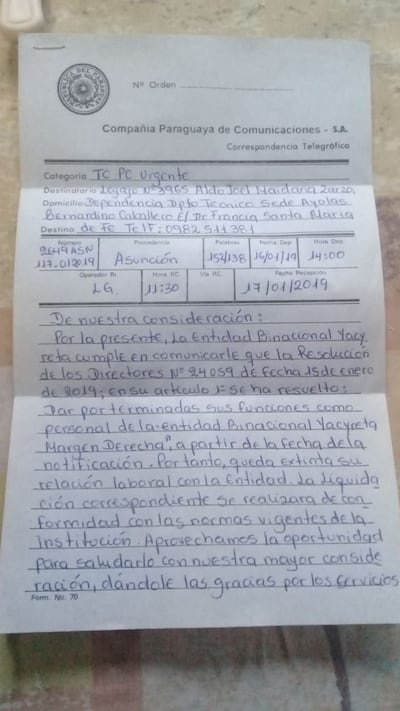 REPUBLICA DEL PARAGUAY
Nº Orden
Compañía Paraguaya de Comunicaciones - S.A.
Correspondencia Telegráfica
Categoría TC PC Urgente
Destinatario Legajo Nº 3965 Aldo Joel Maidana Zarza,
Domicilio Dependencia Dpto Tecnico Sede Ayolas
Bernardino Caballero E/ Dr Francia Santa Maria
Destino de Fe Telf: 0982 511381
Número Procedencia Palabras Fecha Dep Hora Dep
2649 ASN
117-012019 Asunción 152/138 16/01/19 14:00
Operador R: Hora RC. Vía RC. Fecha Recepción
LG. 11:30 17/01/2019
De nuestra consideración:
Por la presente, La Entidad Binacional Yacy
reta cumple en comunicarle que la Resolución
de los Directores Nº 24059 de Fecha 15 de enero
de 2019; en su artículo 1º se ha resuelto:
Dar por terminadas sus funciones como
personal de la Entidad Binacional Yacyreta
Margen Derecha", a partir de la fecha de la
notificación. Por tanto, queda extinta su
relación laboral con la Entidad. La liquida
ción correspondiente se realizara de con
formidad con las normas vigentes de la
institución. Aprovechamos la oportunidad
para saludarlo con nuestra mayor conside
ración, dándole las gracias por los servicios
Form. No. 70